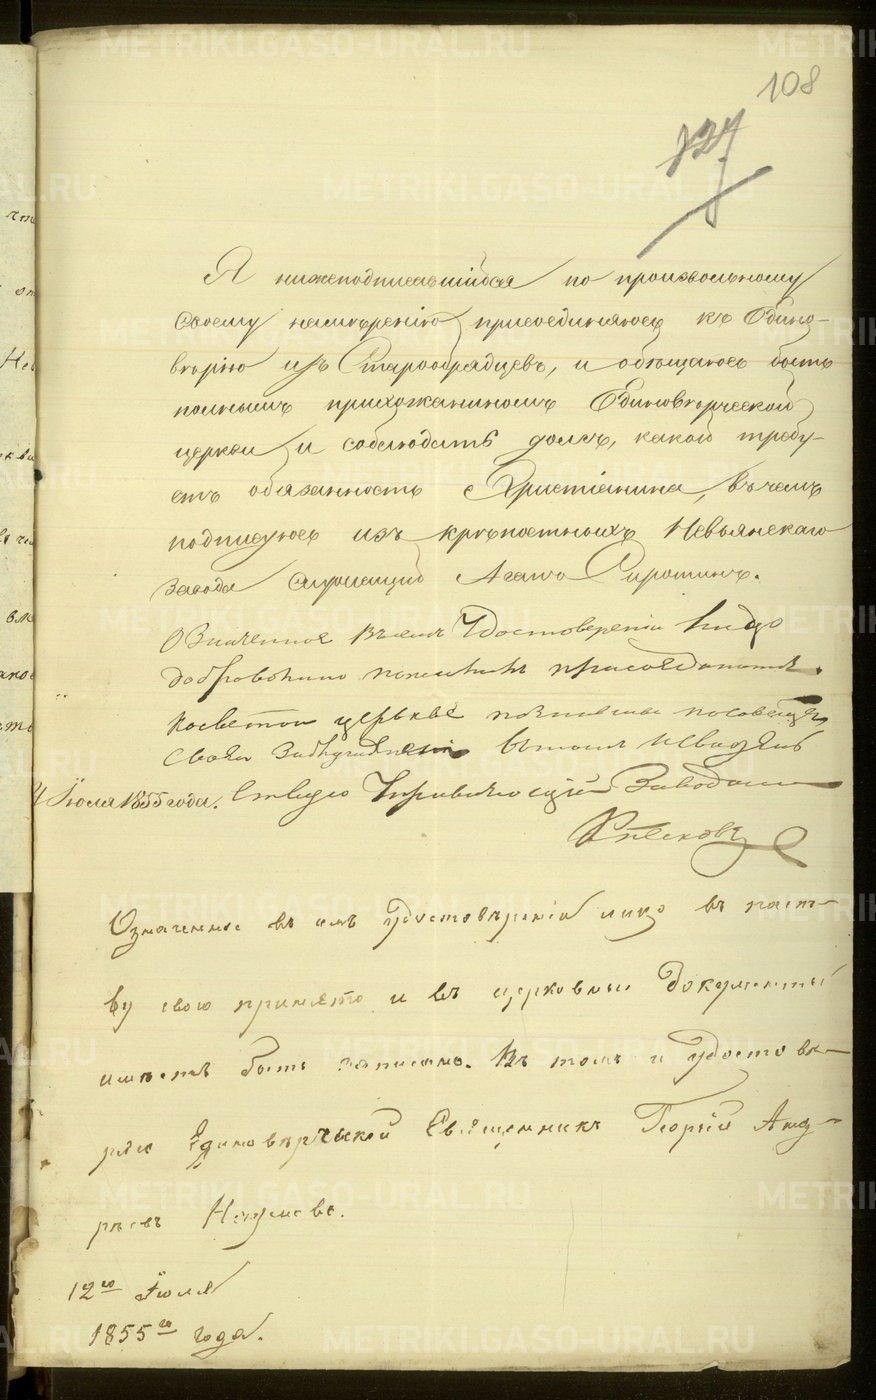 108
127
Я нижеподписавшійся по произвольному
своему намѣренію присоединяюсь къ Едино-
вѣрію изъ Старообрядцевъ, и обѣщаюсь быть
полнымъ прихожаниномъ Единовѣрческой
церкви и соблюдать долгъ, какой требу-
етъ обязанность Христіанина, въ чемъ
подписуюсь изъ крѣпостныхъ Невьянскаго
завода служащій Агапъ Сиротинъ.
Означенное въ семъ Удостовереніи лицо
добровольно присоединится
церькве
своей въ томъ
4 Іюля 1855 года. Управляющій Заводами
Означенное въ семъ Удостовѣреніи лицо въ паст-
ву свою принято и въ церковные документы
имѣетъ быть записано. Въ томъ и удостовѣ-
ряю Единовѣрческой Священникъ Георгій Анд-
рѣевъ
12го Іюля
1855го года.
METRIKI.GASO-URAL.RU